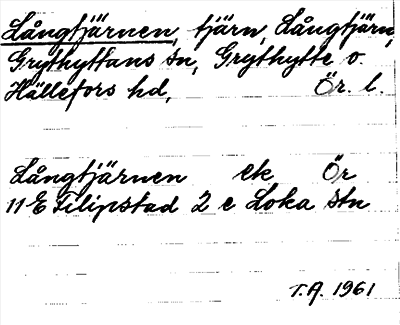 Långtjärnen, tjärn, Långtjärn,
Grythyttans sn, Grythytte o.
Hällefors hd, Ör. l.
Långtjärnen ek Ör
11 E Filipstad 2 e Loka stn
T.A. 1961